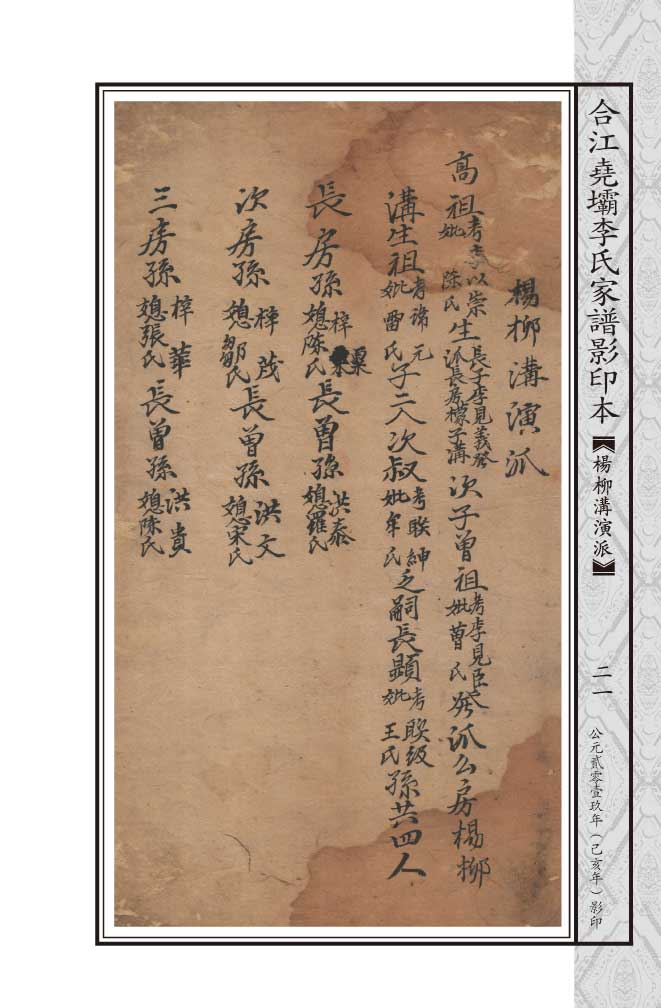 合江堯壩李氏家譜影印本
【楊柳溝演派】
二一
公元貳零壹玖年（己亥年）影印
楊柳溝演派
高祖考李以崇妣陳氏生長子李見義發派長房檬子溝次子曾祖考李見臣妣曹氏發派么房楊柳
溝生祖考諱元妣雷氏子二人次叔考聯紳妣牟氏乏嗣長顯考聯級妣王氏孫共四人
長房孫梓媳陳氏長曾孫洪泰媳羅氏
次房孫梓茂媳鄒氏長曾孫洪文媳宋氏
三房孫梓華媳張氏長曾孫洪貴媳陳氏